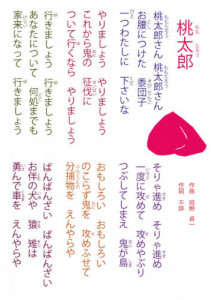 桃太郎
桃太郎さん 桃太郎さん
お腰につけた 黍団子
一つわたしに 下さいな
やりましょう やりましょう
これから鬼の 征伐に
ついて行くなら やりましょう
行きましょう 行きましょう
あなたについて 何処までも
家来になって 行きましょう
作曲 岡野 貞一
作詞 不詳
そりゃ進め そりゃ進め
一度に攻めて 攻めやぶり
つぶしてしまえ 鬼が島
おもしろい おもしろい
のこらず鬼を 攻めふせて
分捕物を えんやらや
ばんばんざい ばんばんざい
お伴の犬や 猿 雉は
勇んで車を えんやらや